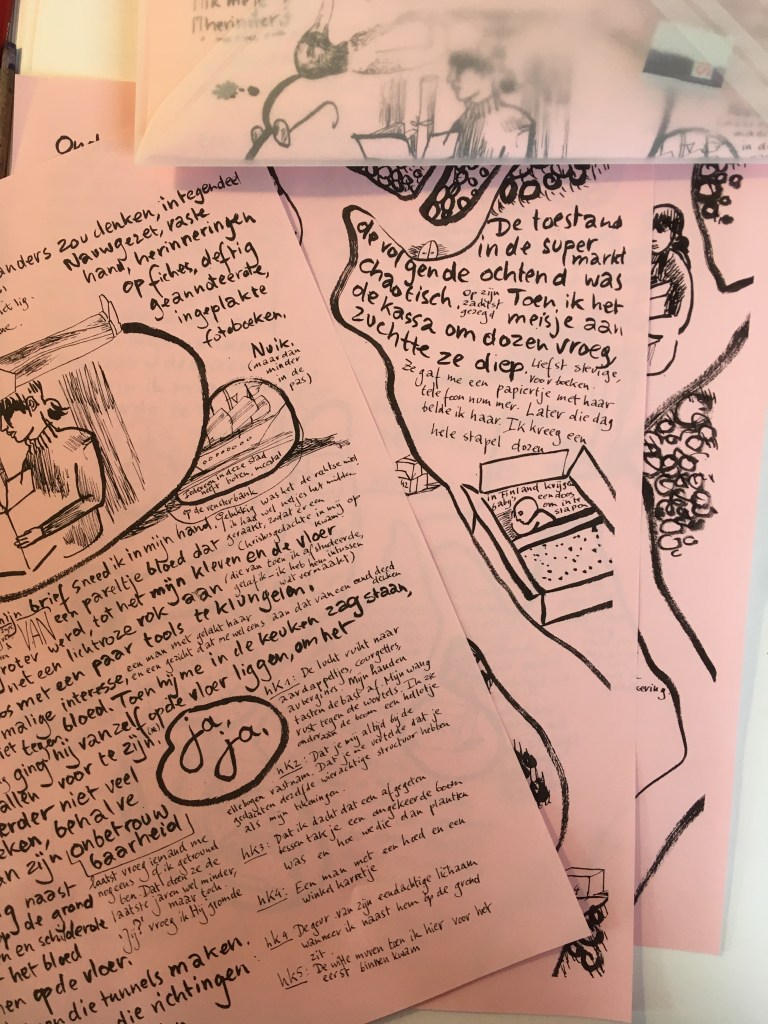 Ik me je
herinner
On
anders zou denken, integendeel
Nauwgezet, vaste
hand, herinneringen
op fiches, deftig
geannoteerde,
ingeplakte
fotoboeken.
Nuik.
(maar dan
minder
in de
pas)
Iedereen in deze stad
heeft boten, meestal
op de vensterbank
mijn brief sneed ik in mijn hand.
Gelukkig was het de rechter
ik had wel netjes het midden
geraakt, zodat er een
Christusgedachte in mij op
kwam
VAN een pareltje bloed dat
groter werd, tot het mijn kleven en de vloer
(die van toen ik afstudeerde,
met een lichtroze rok aan
os met een paar tools te klungelen.
malige interesse,
een man met gelakt haar
en een gezicht dat me wel eens aan dat van een oud deed
denken
niet tegen bloed. Toen hij me in de keuken zag staan,
ging hij vanzelf op de vloer liggen, om het
vallen voor te zijn.
ja,
ja.
erder niet veel
eken, behalve
an zijn onbetrouw
baarheid
laatst vroeg iemand me
nog eens of ik getrouwd
ben. Dat deed ze de
laatste jaren wel minder,
maar toch.
'Jij?' vroeg ik. Hij gromde
g naast
op de grond
en en schilderde
het bloed
men op de vloer.
en die tunnels maken.
die richtingen
hk1: De lucht ruikt naar
aardappeltjes, courgettes,
aubergines. Mijn handen
tasten de bast af. Mijn wang
rust tegen de wortels. Ik zie
onderaan de boom een hdlotje
hk2: Dat je mij altijd bij de
elleboog vastnam. Dat je me vertelde dat je
gedachten dezelfde wierachtige structuur hebben
als mijn tekeningen.
hk3: Dat ik dacht dat een afgegeten
bessentakje een omgekeerde boom
was en hoe we die dan plantten
hk4: Een man met een hoed en een
winkelkarretje
hk4 De geur van zijn eendachtige lichaam
wanneer ik naast hem op de grond
zit.
hk5: De witte muren toen ik hier voor het
eerst binnen kwam
De toestand
in de super
markt
de volgende ochtend was
chaotisch,
op zijn
zachtst
gezegd
Toen ik het
meisje aan
de kassa om dozen vroeg,
zuchtte ze diep.
Liefst stevige,
voor boeken.
Ze gaf me een papiertje met haar
telefoonnummer. Later die dag
belde ik haar. Ik kreeg een
hele stapel dozen
in Finland krijgen
baby's een doos
om in te
slapen